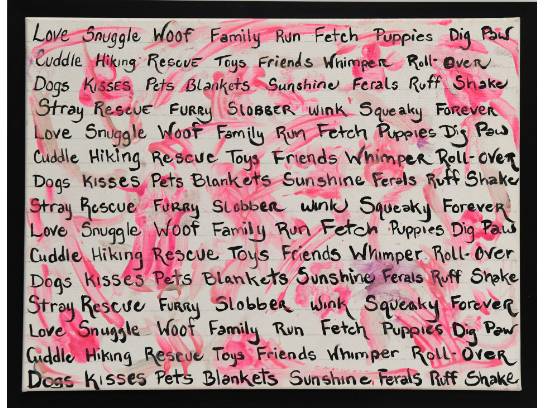 Love Snuggle Woof Family Run Fetch Puppies Dig Paw
Cuddle Hiking Rescue Toys Friends Whimper Roll-Over
Dogs Kisses Pets Blankets Sunshine Ferals Ruff Shake
Stray Rescue Furry Slobber wink Squeaky Forever
Love Snuggle Woof Family Run Fetch Puppies Dig Paw
Cuddle Hiking Rescue Toys Friends Whimper Roll-Over
Dogs Kisses Pets Blankets Sunshine Ferals Ruff Shake
Stray Rescue Furry Slobber wink Squeaky Forever
Love Snuggle Woof Family Run Fetch Puppies Dig Paw
Cuddle Hiking Rescue Toys Friends Whimper Roll-Over
Dogs Kisses Pets Blankets Sunshine Ferals Ruff Shake
Stray Rescue Furry Slobber wink Squeaky Forever
Love Snuggle Woof Family Run Fetch Puppies Dig Paw
Cuddle Hiking Rescue Toys Friends Whimper Roll-Over
Dogs Kisses Pets Blankets Sunshine Ferals Ruff Shake